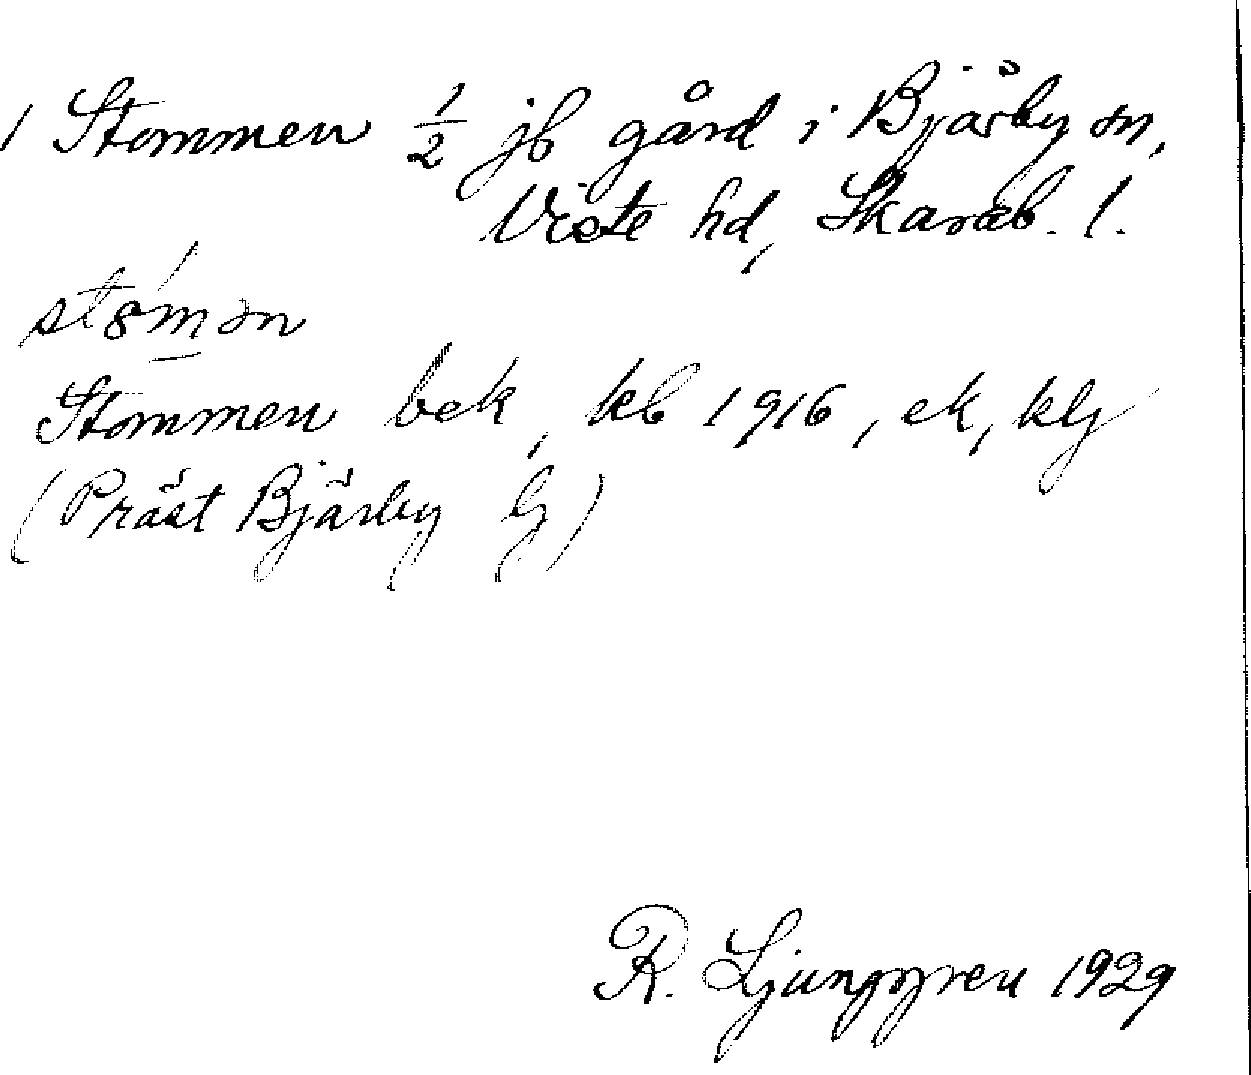 1 Stommen 1/2 jb gård i Bjärby sn,
Viste hd, Skarab. l.
st8́m̲ən
Stommen bek, kb 1916, ek, klj
(Präst Bjärby lj)
R. Ljunggren 1929